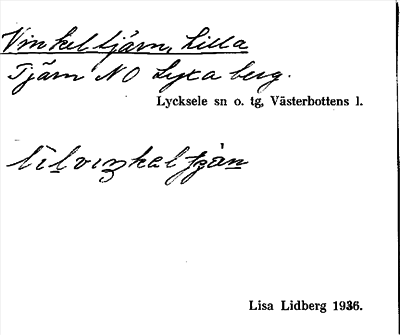 Vinkeltjärn, Lilla
Tjärn NO Lyxaberg.
Lycksele sn o. tg, Västerbottens l.
lilvıŋkəltjạ̀n
Lisa Lidberg 1936.